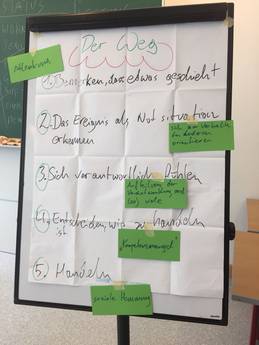 Der Weg
1. Bemerken, dass etwas geschieht
2. Das Ereignis als Notsituation
erkennen
sich am Verhalten
der anderen
orientieren
3. Sich verantwortlich fühlen
Aufteilung der
Verantwortung auf
viele
4. Entscheiden, wie zu handeln
ist
"Kompetenzmangel"
5. Handeln
soziale Hemmung